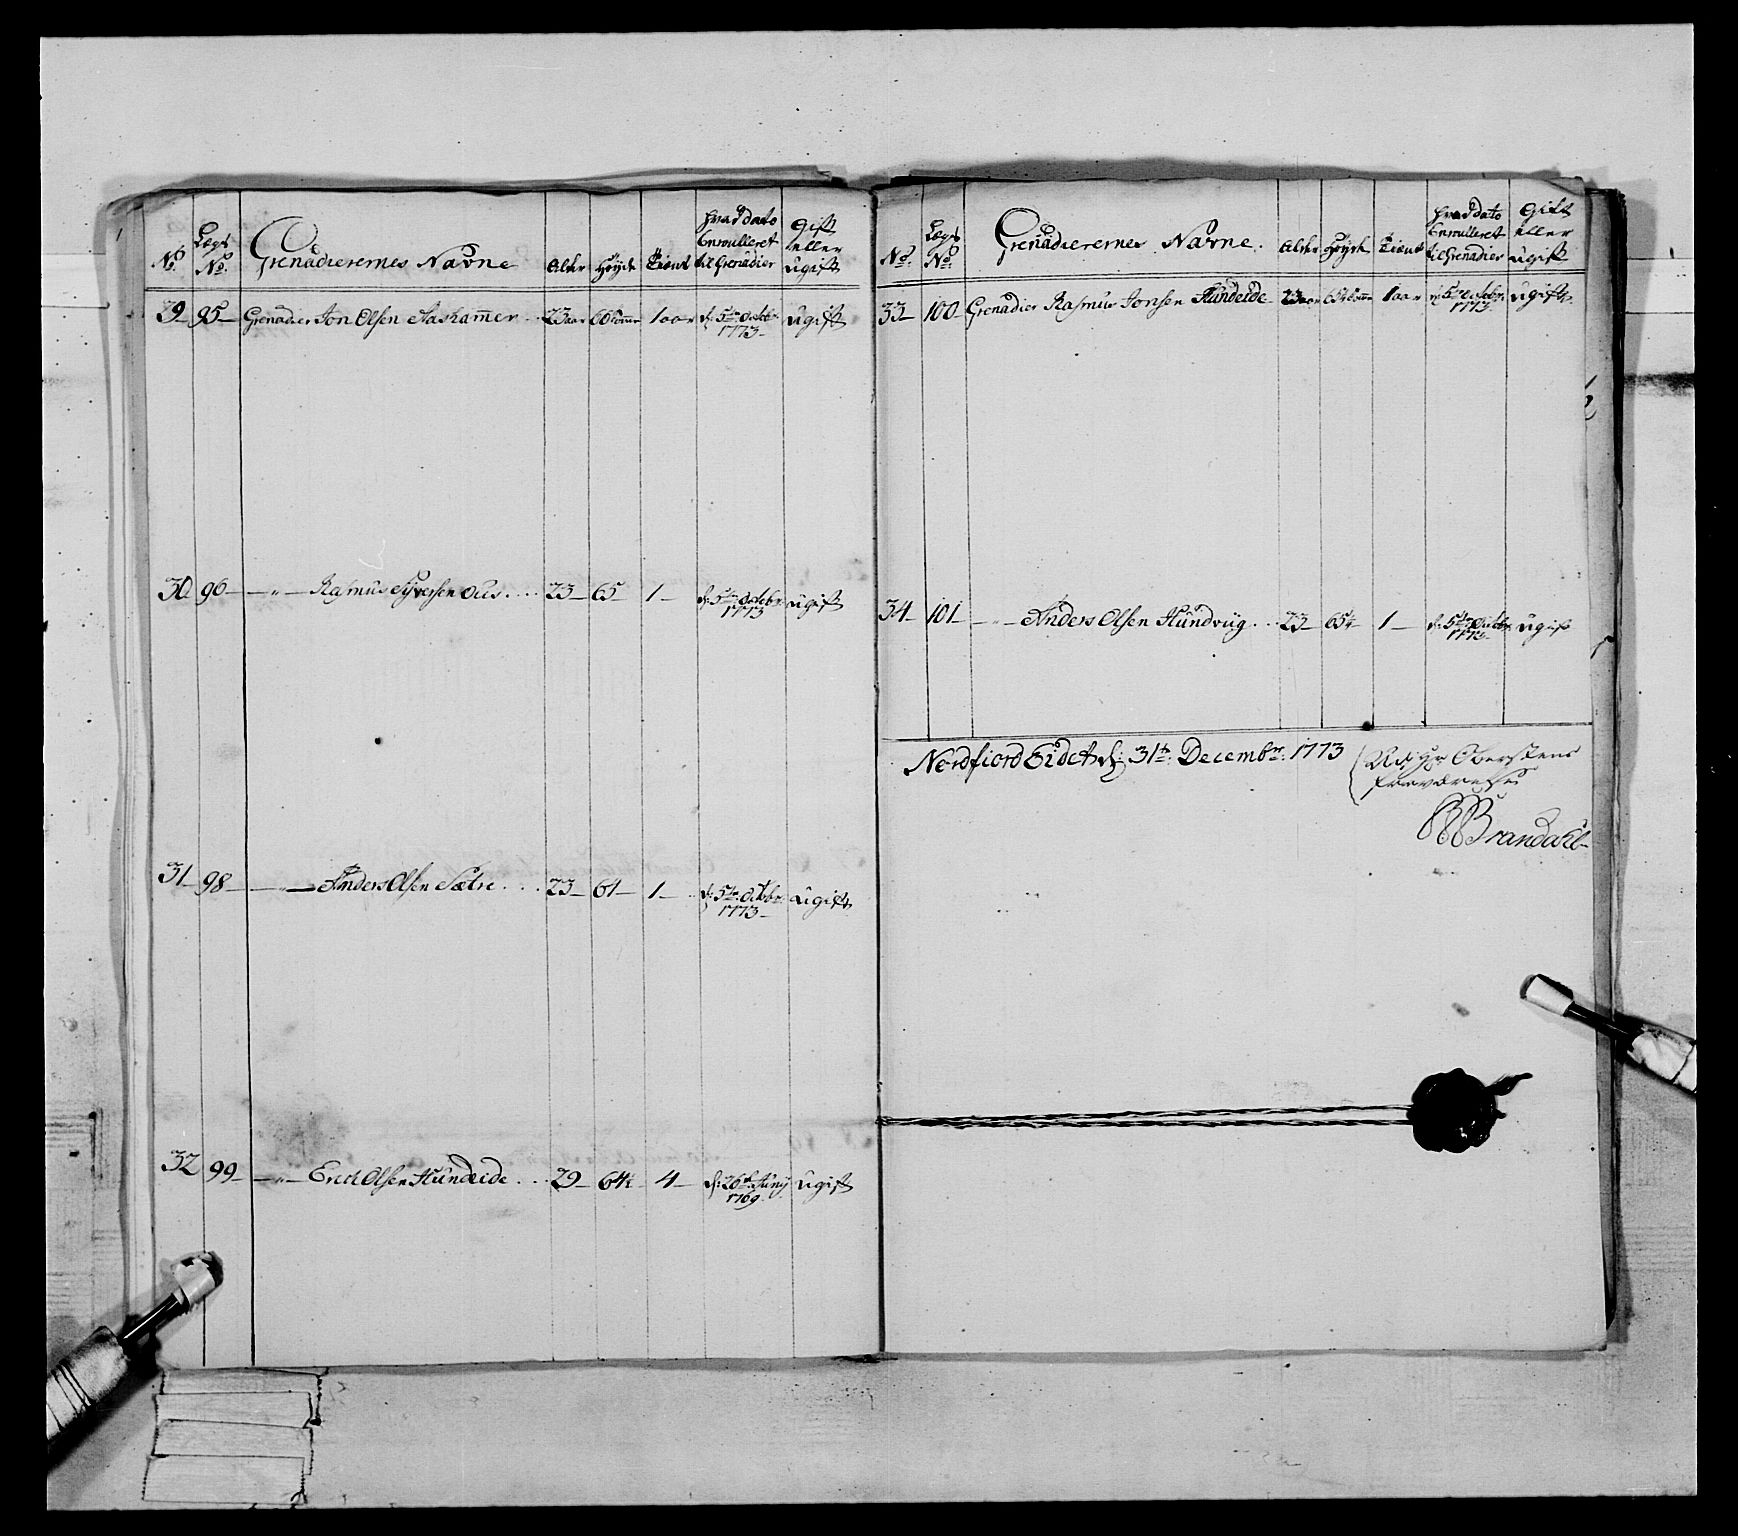 No. Lægs No. Grenadierernes Navne Alder Höyde Tient hvad dato Enroulleret til Grenadier Gift eller ugift
29 95 Grenadier Jon Olsen Aaskamer 23 aar 66 Tomer 1 aar d: 5te Octobr: 1773 ugift
30 96 — " — Rasmus Syversen Ous 23 65 1 d: 5te Octobr: 1773 ugift
31 98 — " — Anders Olsen Sætre 23 64 1 d: 5te Octobr: 1773 ugift
32 99 — " — Erick Olsen Hundeide 29 64½ 4 d: 26de Juny 1769 ugift
No. Lægs No. Grenadierernes Navne. Alder Höyde Tient hvad dato Enroulleret til Grenadier Gift eller ugift
33 100 Grenadier Rasmus Jonsen Hundeide 23 aar 1 aar d: 5te Octobr: 1773 ugift
34 101 — " — Anders Olsen Hundvug 23 1 d: 5te Octobr: 1773 ugift
Nordfiord Eidet d: 31te Decembr: 1773
Ved Hr Oberstens
fraværelse
Brandahl